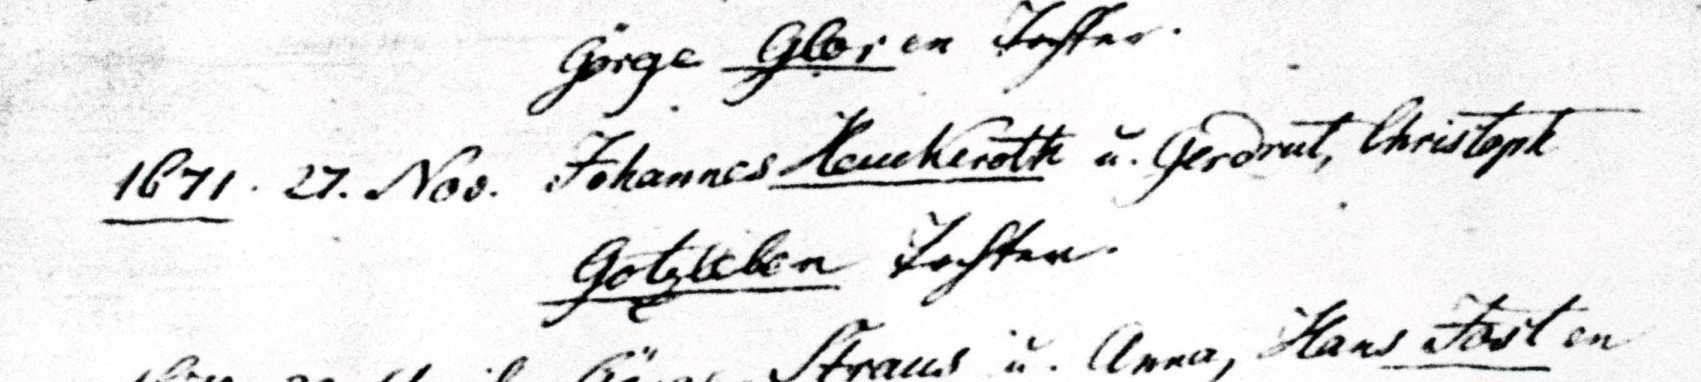 Görge Gloren Tochter.
1671. 27. Nov. Johannes Heuckeroth u. Gerdrut, Christoph
Gotzleben Tochter.
Straus u. Anna, Hans Josten